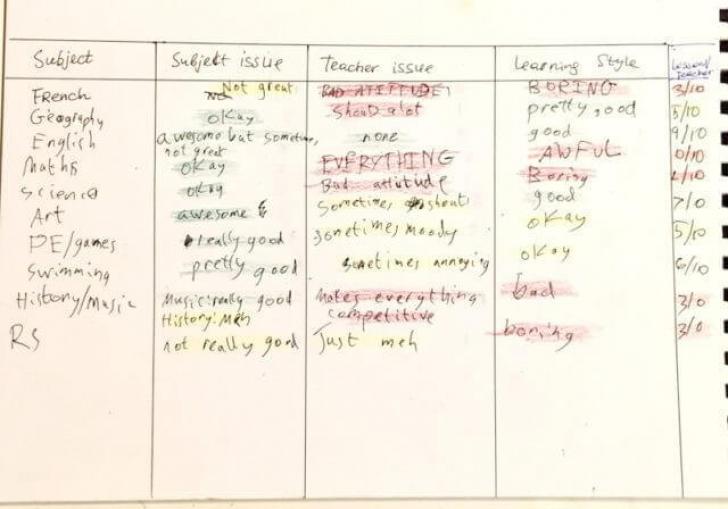 Subject Subject issue Teacher issue Learning Style Lesson/Teacher
French Not great BAD ATITTUDE! BORING 3/10
Geography okay Shout alot pretty good 5/10
English awesome but sometimes, not great none good 9/10
Maths okay EVERYTHING AWFUL 0/10
Science okay Bad attitude Boring /10
Art awesome Sometimes shouts good 7/0
PE/games really good sometimes moody okay 5/10
Swimming pretty good sometimes annoying okay 6/10
History/Music Music: really good Makes everything bad 3/0
History: Meh competitive
RS not really good Just meh boring 3/0